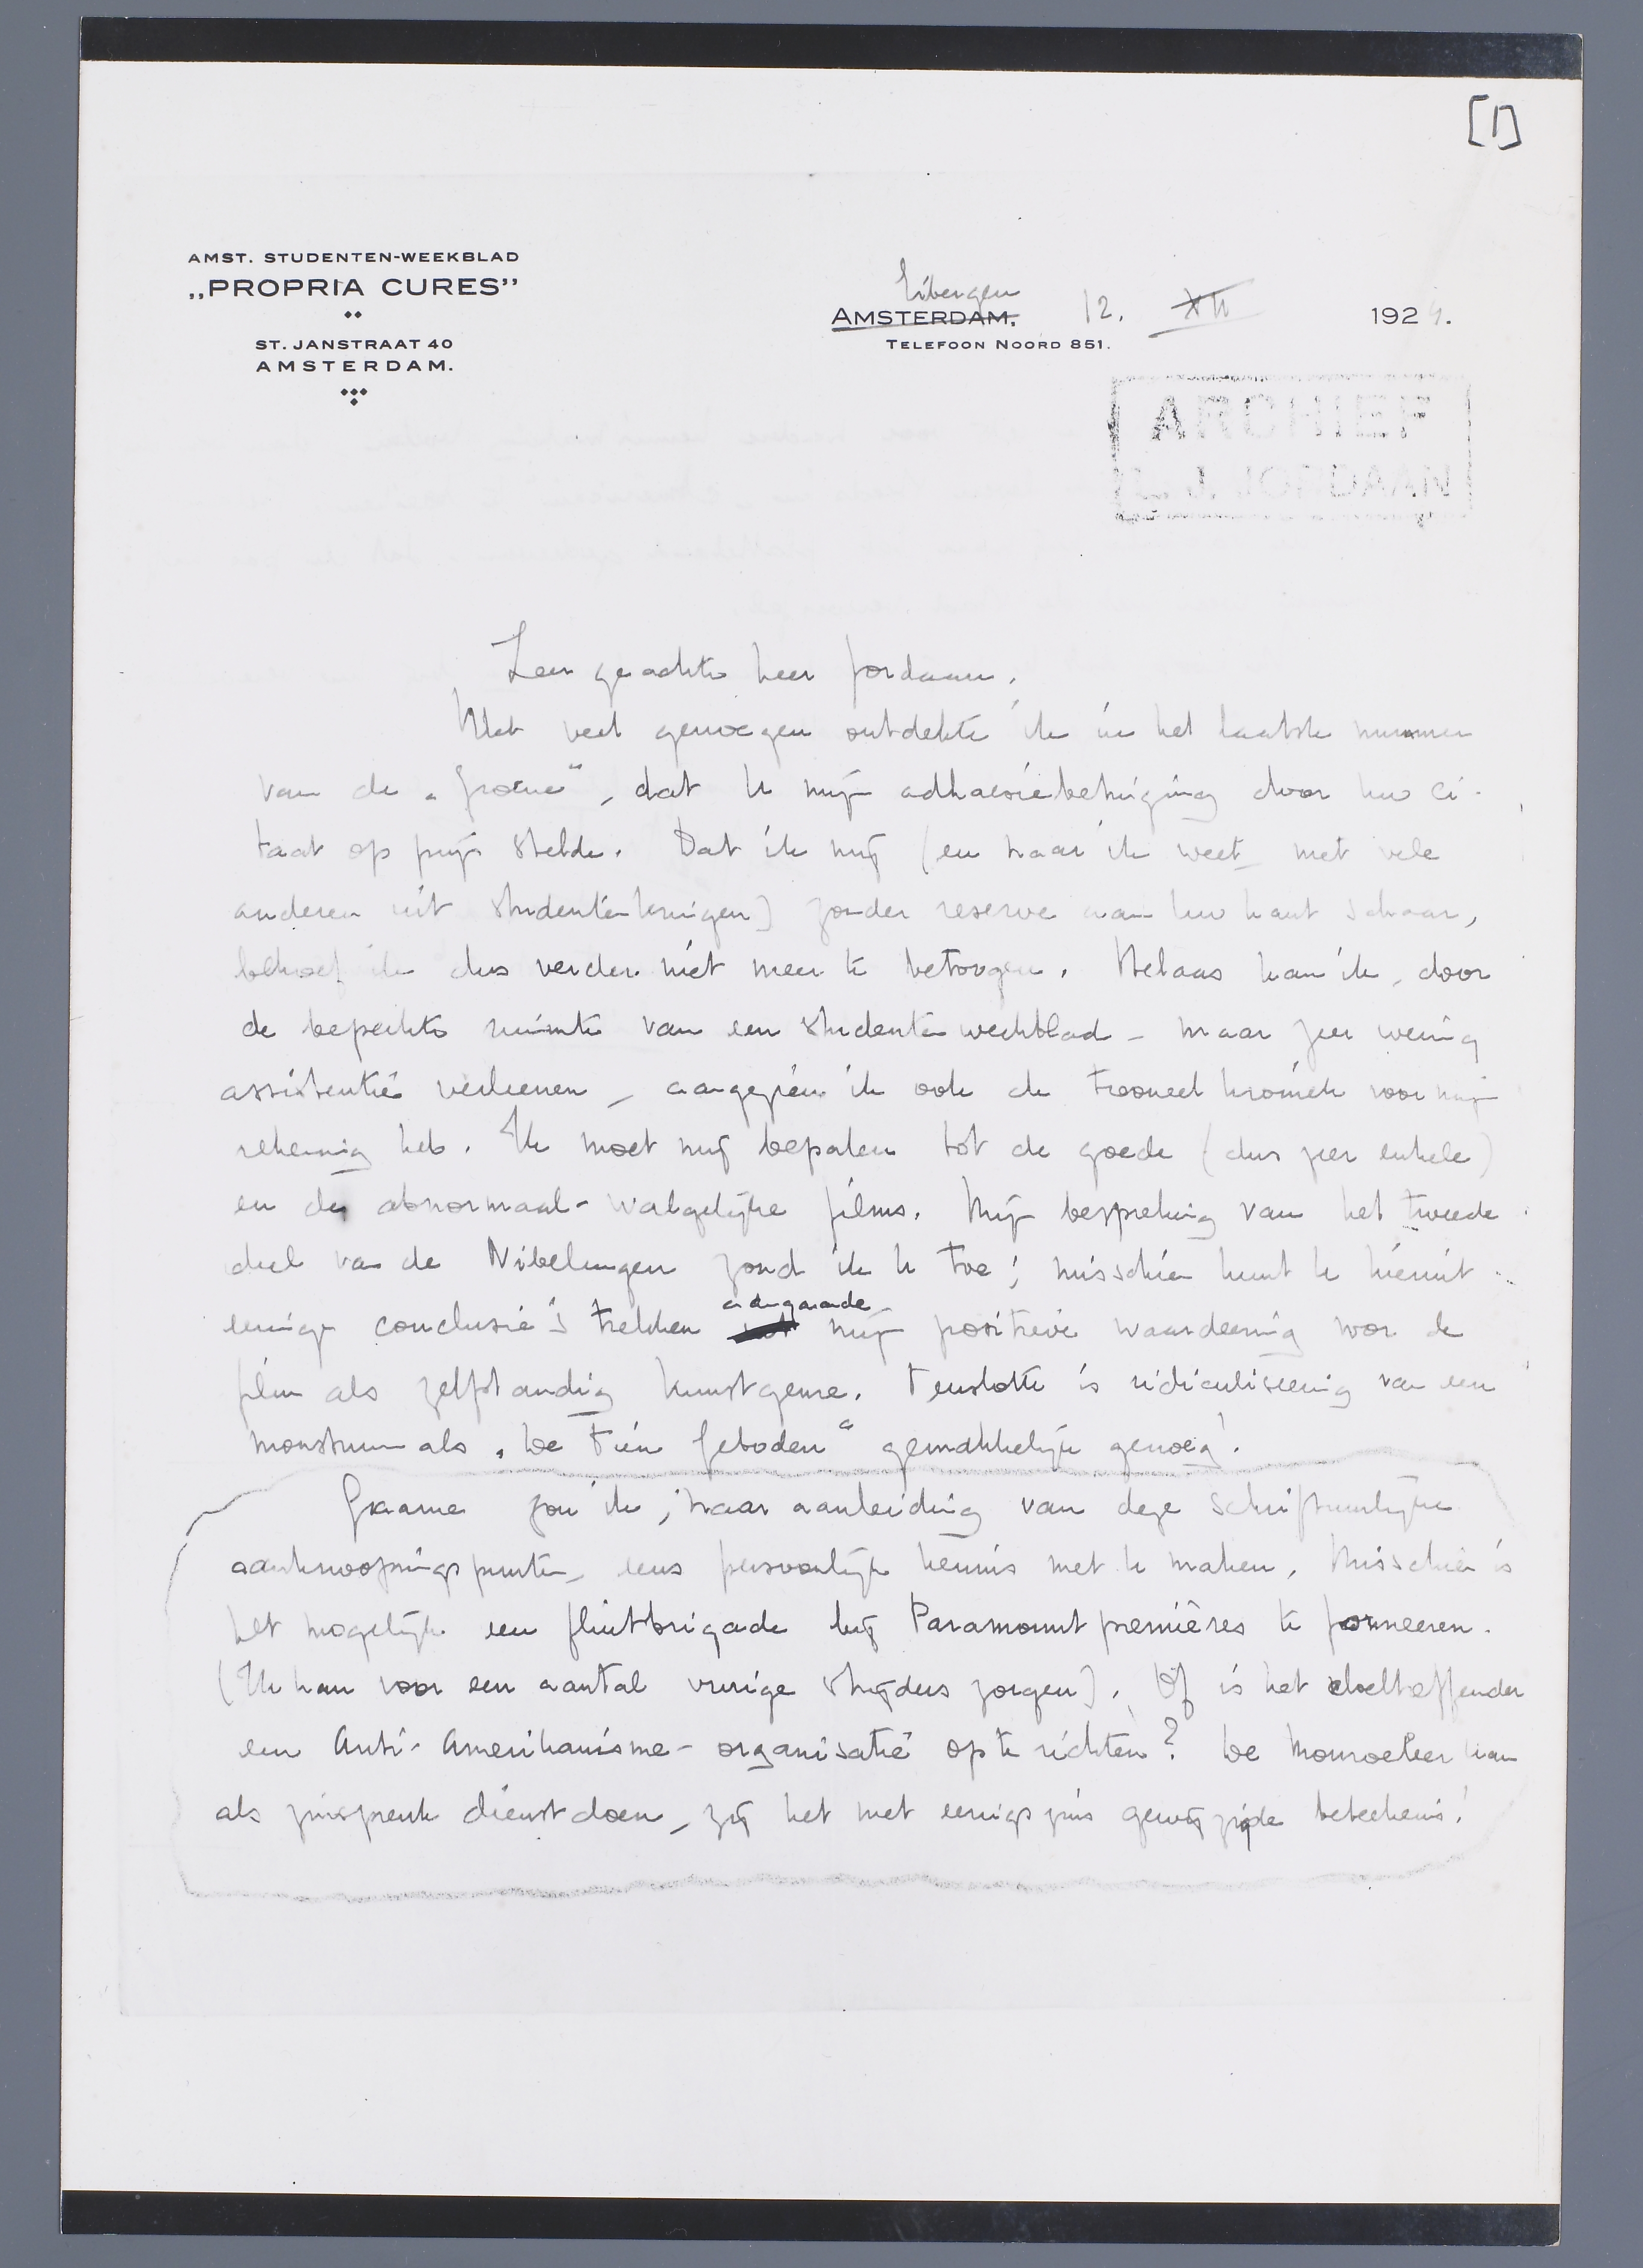 [1]
AMST. STUDENTEN-WEEKBLAD
„PROPRIA CURES”
ST. JANSTRAAT 40
AMSTERDAM.
Eibergen
AMSTERDAM, 12. XII 1924.
TELEFOON NOORD 851.
ARCHIEF
L. J. JORDAAN
Zeer geachte heer Jordaan,
Met veel genoegen ontdekte ik in het laatste nummer
van de „Groene”, dat U mijn adhaesiebetuiging door Uw ci-
taat op prijs stelde. Dat ik mij (en naar ik weet met vele
anderen uit studentenkringen) zonder reserve aan Uw kant schaar,
behoef ik dus verder niet meer te betoogen. Helaas kan ik, door
de beperkte ruimte van een studentenweekblad – maar zeer weinig
assistentie verleenen, aangezien ik ook de tooneelkroniek voor mijn
rekening heb. Ik moet mij bepalen tot de goede (dus zeer enkele)
en de abnormaal-walgelijke films. Mijn bespreking van het tweede
deel van de Nibelungen zond ik U toe; misschien kunt U hieruit
eenige conclusie's trekken aangaande mijn positieve waardeering voor de
film als zelfstandig kunstgenre. Tenslotte is ridiculiseering van een
monstrum als „De Tien Geboden” gemakkelijk genoeg!
Gaarne zou ik, naar aanleiding van deze schriftuurlijke
aanknoopingspunten, eens persoonlijk kennis met U maken. Misschien is
het mogelijk een fluitbrigade bij Paramount premières te formeeren.
(Ik kan voor een aantal vurige strijders zorgen). Of is het doeltreffender
een Anti-Amerikanisme-organisatie op te richten? De Monroeleer kan
als zinspreuk dienst doen, zij het met eenigszins gewijzigde beteekenis!